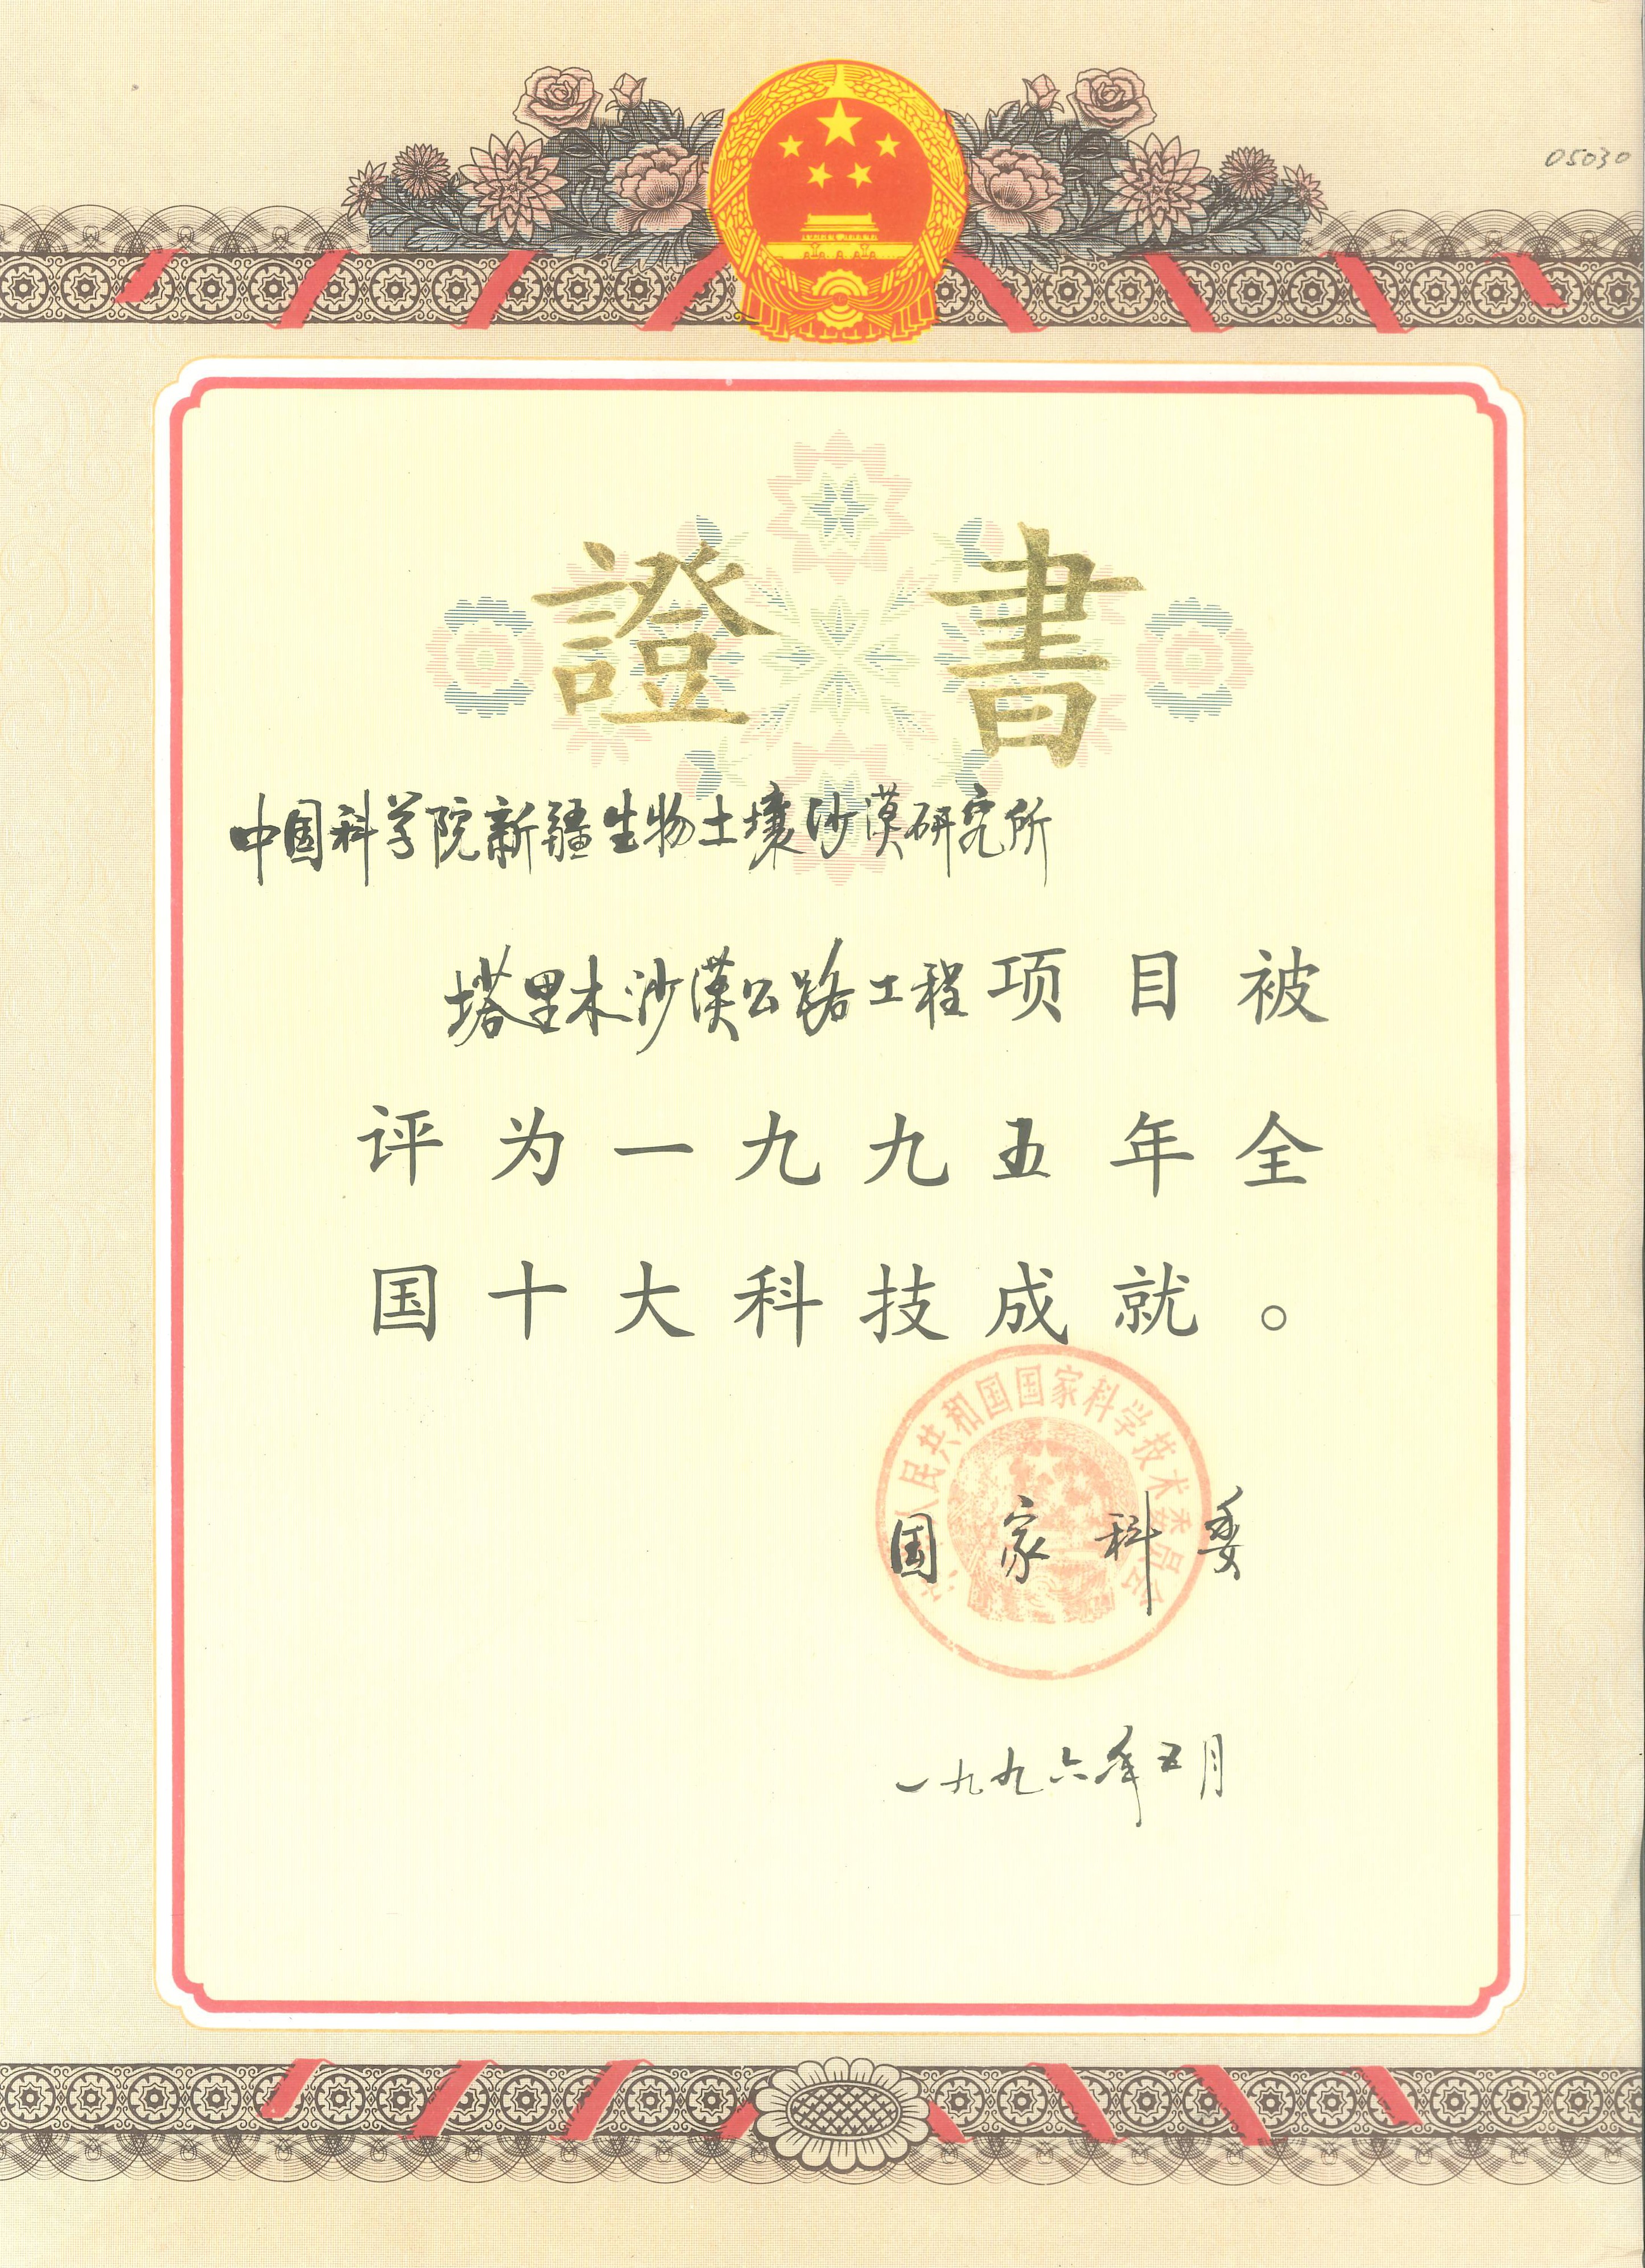 05030
證書
中国科学院新疆生物土壤沙漠研究所
塔里木沙漠公路工程项目被
评为一九九五年全
国十大科技成就。
人民共和国国家科学技术委员会
国家科委
一九九六年五月